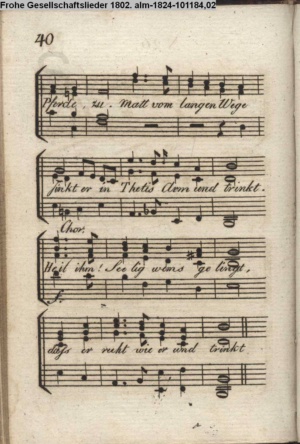 Frohe Gesellschaftslieder 1802. alm-1824-101184,02
40
Pferde zu. Matt vom langen Wege
sinkt er in Thetis Arm und trinkt.
Chor.
Heil ihm! See lig wems ge lingt,
f.
dass er ruht wie er und trinkt